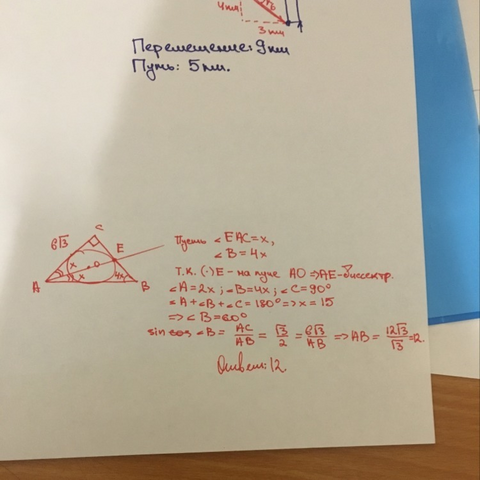 4км
3 км
Перемещение: 9км
Путь: 5 км.
C
6√3
E
x
O
x
4x
A
B
Пусть ∠EAC=x,
∠B=4x
Т.к. (·)E - на луче AO => AE-биссектр.
∠A=2x; ∠B=4x; ∠C=90°
∠A+∠B+∠C=180° => x=15
=> ∠B=60°
sin ∠B = AC/AB = √3/2 = 6√3/AB => AB = 12√3/√3 = 12.
Ответ: 12.